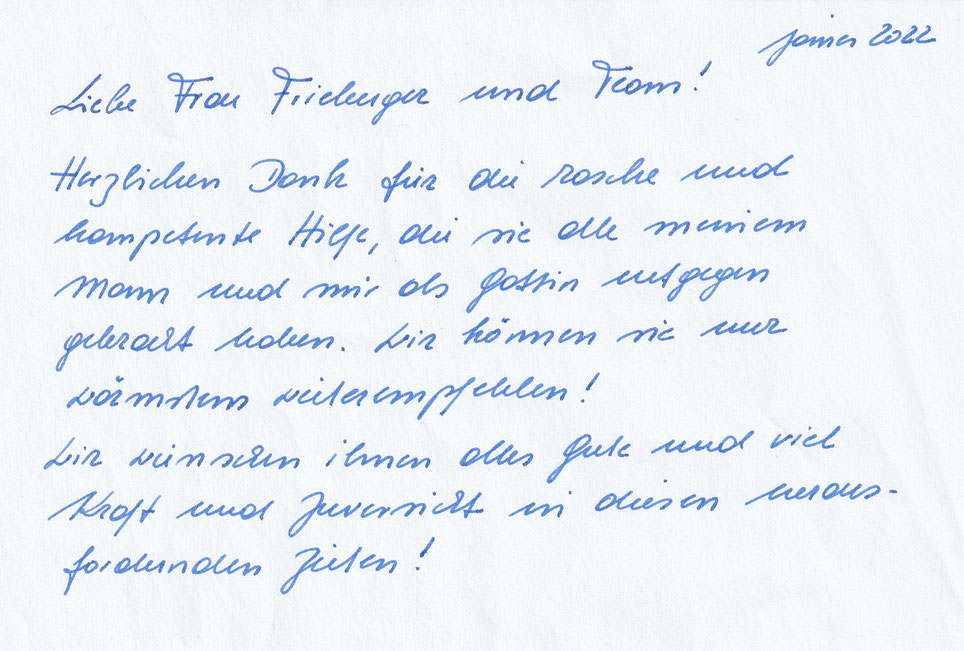 Jänner 2022
Liebe Frau Frieberger und Team!
Herzlichen Dank für die rasche und
kompetente Hilfe, die sie alle meinem
Mann und mir als Gattin entgegen
gebracht haben. Wir können sie nur
wärmstens weiterempfehlen!
Wir wünschen ihnen alles Gute und viel
Kraft und Zuversicht in diesen heraus-
fordernden Zeiten!